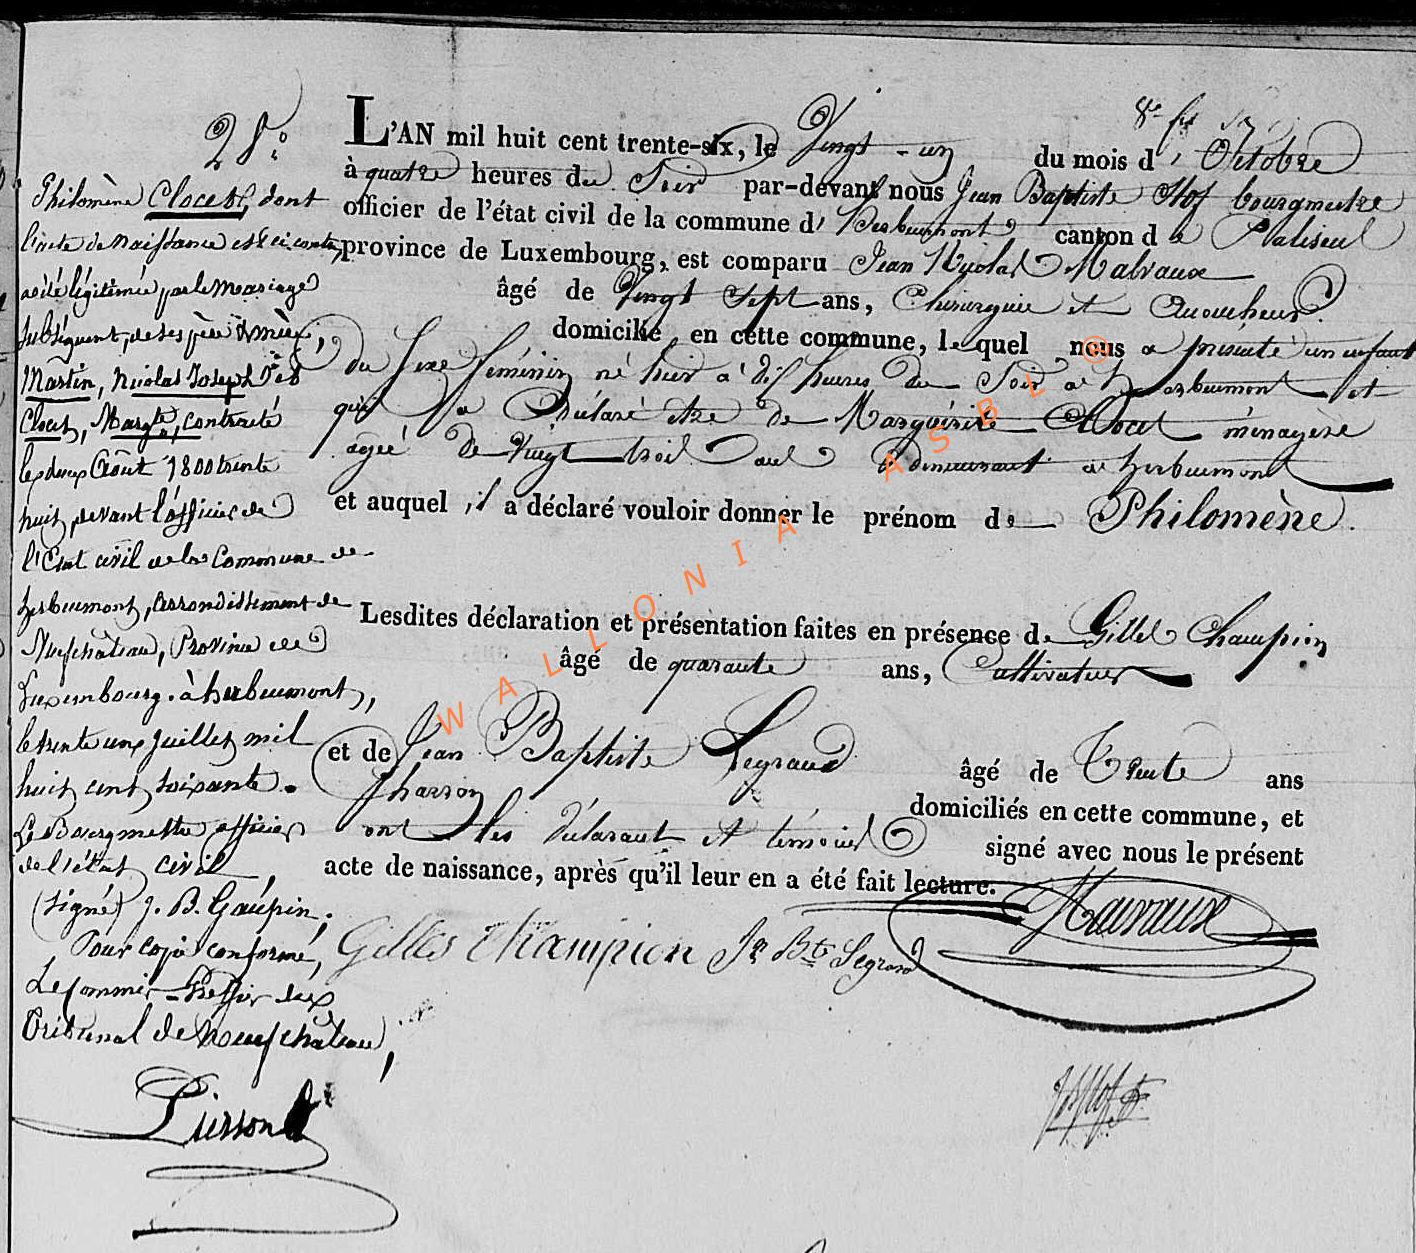 28°
Philomène Clocet, dont
l'acte de naissance est ci contre,
a été légitimée par le mariage
subséquent, de ses père & mère,
Martin, Nicolas Joseph
Clocet, Margte, contracté
les deux Août 1800 trente
huit, devant l'officier de
l'Etat civil de la Commune de
herbeumont, Arrondissement de
Neufchâteau, Province de
Luxembourg. à herbeumont,
le trente un juillet mil
huit cent soixante.
Le Bourgmestre officier
de l'état civil,
(signé) J. B. Gaupin.
Pour copie conforme,
Le Commis-Greffier du
Tribunal de Neufchâteau,
Pierson
L'AN mil huit cent trente-six, le Vingt-un du mois d'Octobre
à quatre heures du Soir par-devant nous Jean Baptiste Hof bourgmestre
officier de l'état civil de la commune d'Herbeumont canton de Paliseul
province de Luxembourg, est comparu Jean Nicolas Malvaux
âgé de Vingt Sept ans, Chirurgien et Accoucheur
domicilié en cette commune, lequel nous a présenté un enfant
du Sexe féminin né hier à dix heures du Soir à herbeumont et
qu'il a Déclaré être de Marguérite Clocet ménagère
agée de Vingt trois ans demeurant à herbeumont
et auquel il a déclaré vouloir donner le prénom de Philomène.
Lesdites déclaration et présentation faites en présence de Gilles Champion
âgé de quarante ans, Cultivateur
et de Jean Baptiste Legrand âgé de Trente ans
Charron domiciliés en cette commune, et
ont les déclarant et témoins signé avec nous le présent
acte de naissance, après qu'il leur en a été fait lecture.
Malvaux
Gilles Champion Jn Bte Legrand
WALLONIA ASBL ®